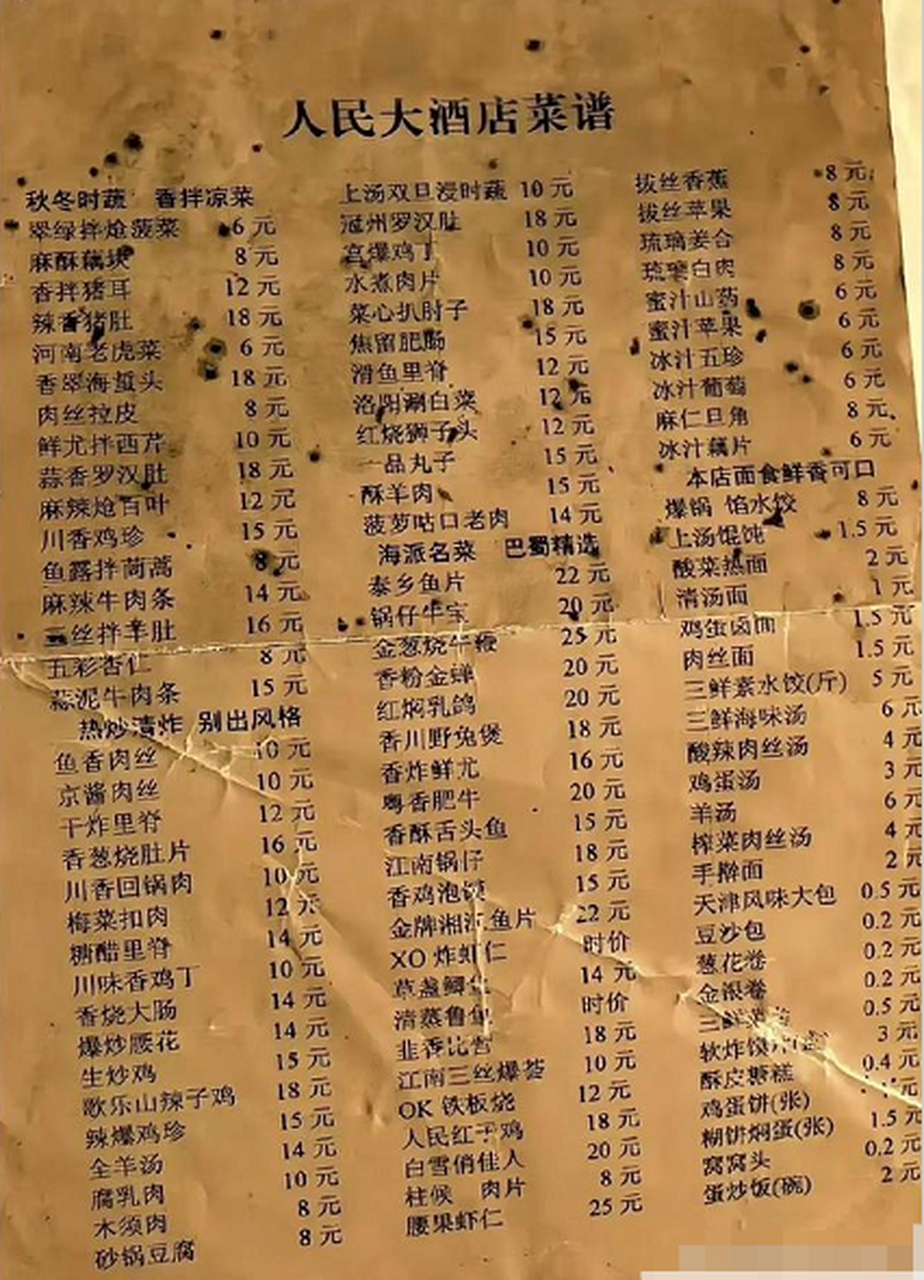 人民大酒店菜谱
秋冬时蔬 香拌凉菜
翠绿拌炝菠菜 6元
麻酥藕块 8元
香拌猪耳 12元
辣香猪肚 18元
河南老虎菜 6元
香翠海蜇头 18元
肉丝拉皮 8元
鲜尤拌西芹 10元
蒜香罗汉肚 18元
麻辣炝百叶 12元
川香鸡珍 15元
鱼露拌茼蒿 8元
麻辣牛肉条 14元
三丝拌羊肚 16元
五彩杏仁 8元
蒜泥牛肉条 15元
热炒清炸 别出风格
鱼香肉丝 10元
京酱肉丝 10元
干炸里脊 12元
香葱烧肚片 16元
川香回锅肉 10元
梅菜扣肉 12元
糖醋里脊 14元
川味香鸡丁 10元
香烧大肠 14元
爆炒腰花 14元
生炒鸡 15元
歌乐山辣子鸡 18元
辣爆鸡珍 15元
全羊汤 14元
腐乳肉 10元
木须肉 8元
砂锅豆腐 8元
上汤双旦浸时蔬 10元
冠州罗汉肚 18元
宫爆鸡丁 10元
水煮肉片 10元
菜心扒肘子 18元
焦留肥肠 15元
滑鱼里脊 12元
洛阳涮白菜 12元
红烧狮子头 12元
一品丸子 15元
酥羊肉 15元
菠萝咕口老肉 14元
海派名菜 巴蜀精选
泰乡鱼片 22元
锅仔牛宝 20元
金葱烧牛鞭 25元
香粉金蝉 20元
红焖乳鸽 20元
香川野兔煲 18元
香炸鲜尤 16元
粤香肥牛 20元
香酥舌头鱼 15元
江南锅仔 18元
香鸡泡馍 15元
金牌湘江鱼片 22元
XO 炸虾仁 时价
草盏鲫鱼 14元
清蒸鲁鱼 时价
韭香比管 18元
江南三丝爆荟 10元
OK 铁板烧 12元
人民红干鸡 18元
白雪俏佳人 20元
柱候 肉片 8元
腰果虾仁 25元
拔丝香蕉 8元
拔丝苹果 8元
琉璃姜合 8元
琉璃白肉 8元
蜜汁山药 6元
蜜汁苹果 6元
冰汁五珍 6元
冰汁葡萄 6元
麻仁旦角 8元
冰汁藕片 6元
本店面食鲜香可口
爆锅 馅水饺 8元
上汤馄饨 1.5元
酸菜热面 2元
清汤面 1元
鸡蛋卤面 1.5元
肉丝面 1.5元
三鲜素水饺(斤) 5元
三鲜海味汤 6元
酸辣肉丝汤 4元
鸡蛋汤 3元
羊汤 6元
榨菜肉丝汤 4元
手擀面 2元
天津风味大包 0.5元
豆沙包 0.2元
葱花卷 0.2元
金银卷 0.2元
三鲜 0.5元
软炸馍片 3元
酥皮糖糕 0.4元
鸡蛋饼(张) 元
糊饼焖蛋(张) 1.5元
窝窝头 0.2元
蛋炒饭(碗) 2元